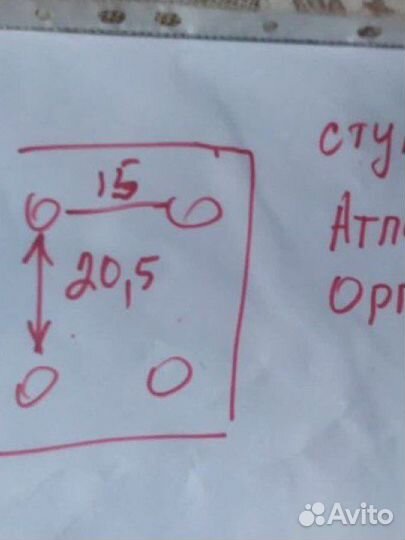 15
20,5
сту
Атл
Орг
Avito